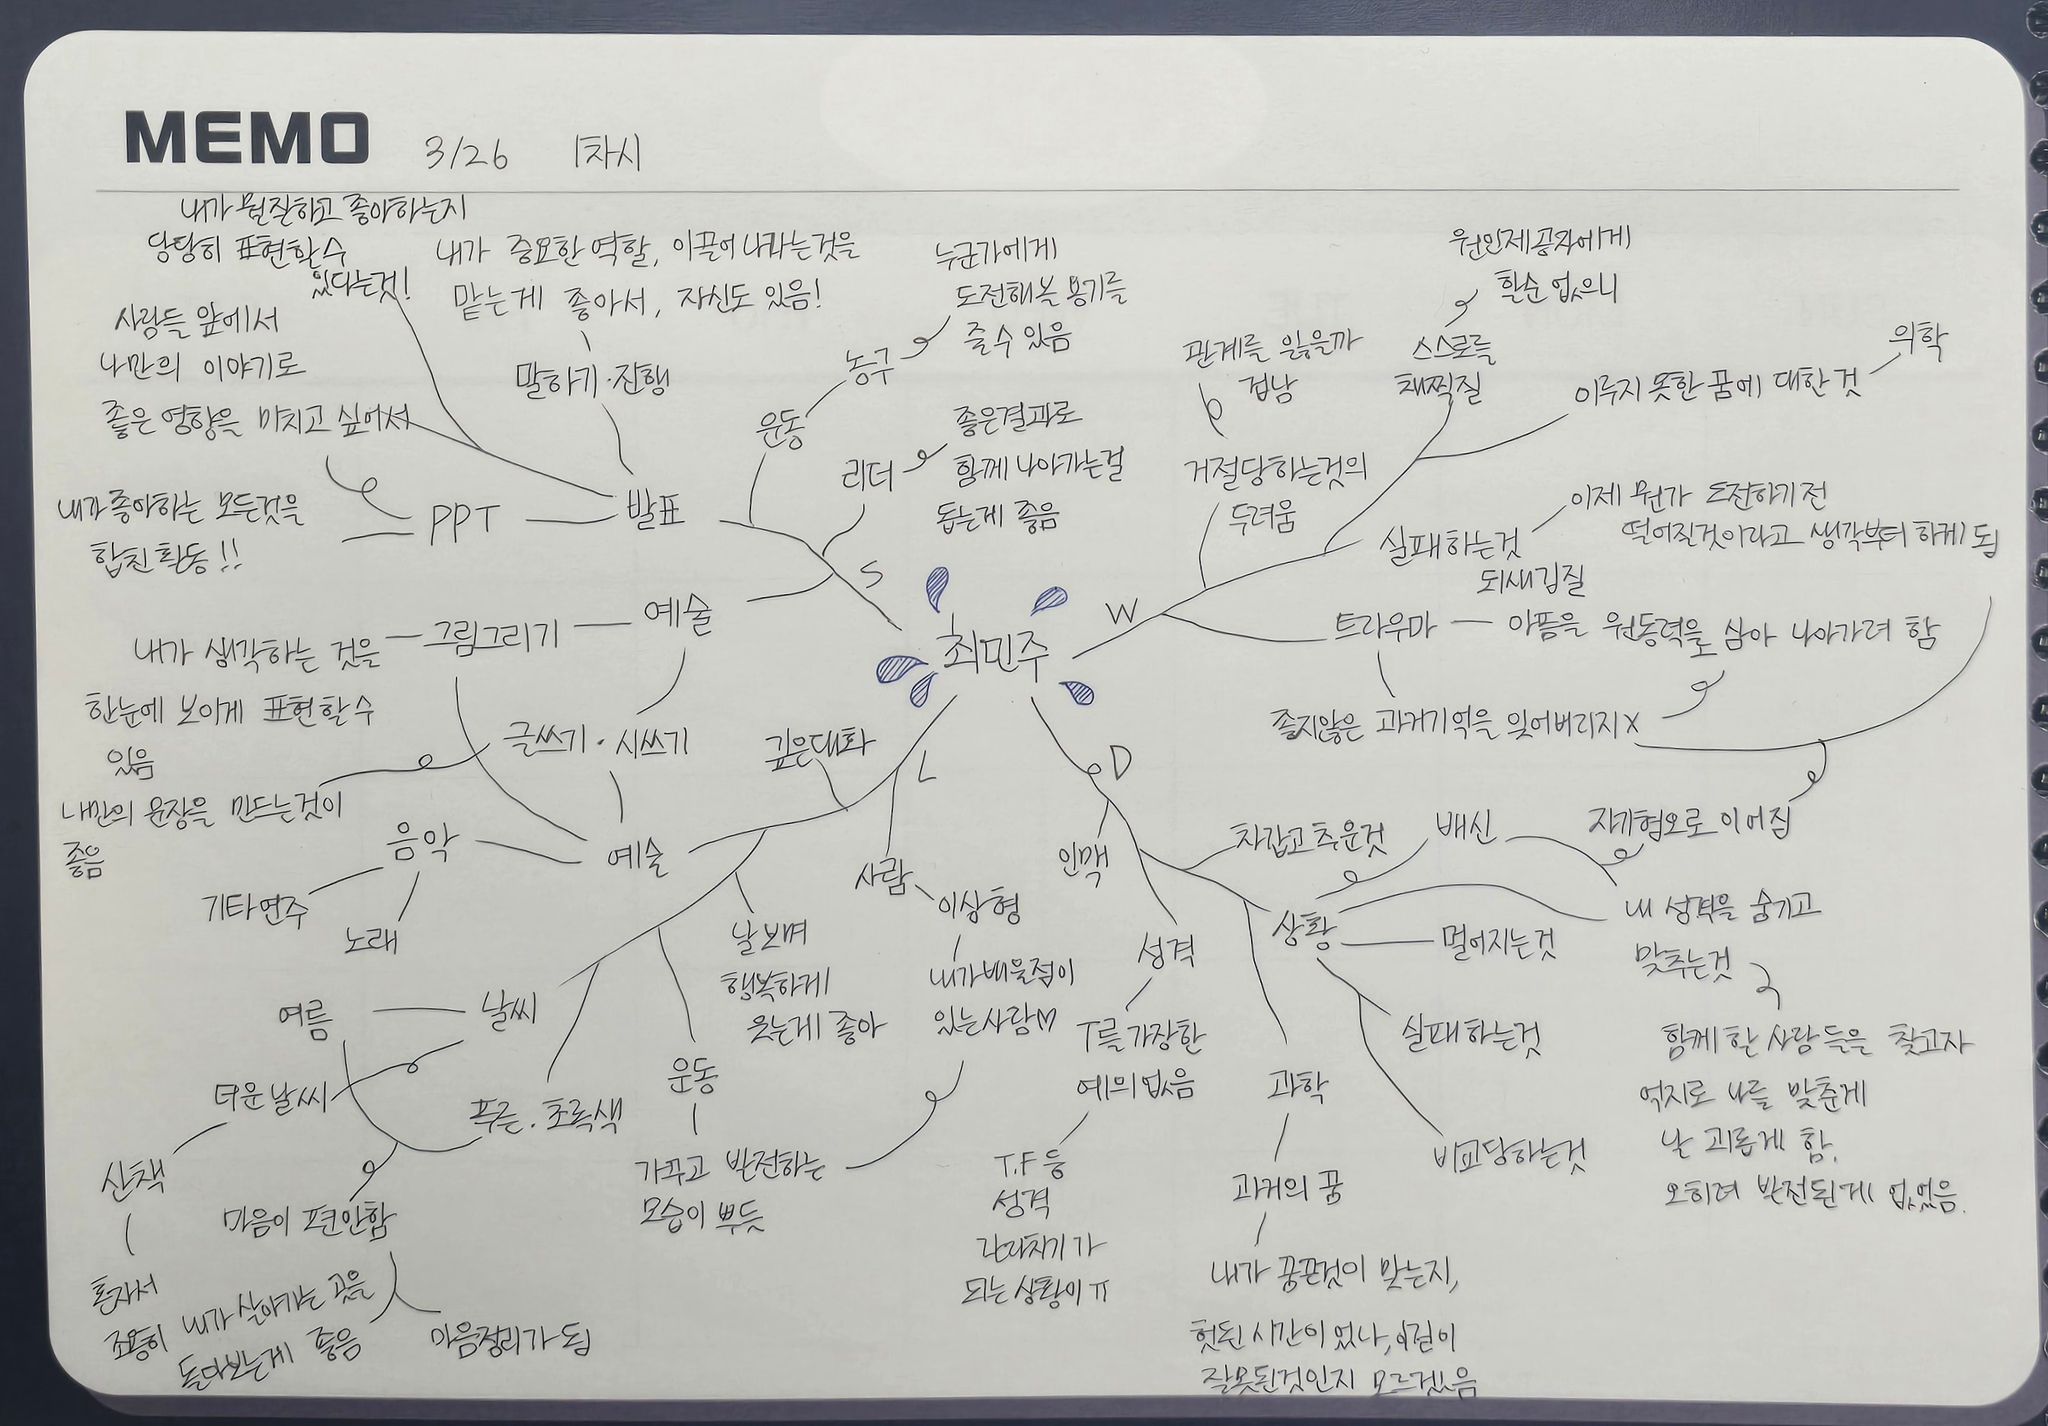 MEMO 3/26 1차시
내가 뭘잘하고 좋아하는지
당당히 표현할수
있다는것!
내가 중요한 역할, 이끌어나가는것을
맡는게 좋아서, 자신도 있음!
말하기·진행
사람들 앞에서
나만의 이야기로
좋은 영향을 미치고 싶어서
발표
PPT
내가 좋아하는 모든것을
합친 활동!!
운동
농구
누군가에게
도전해볼 용기를
줄수 있음
리더
좋은결과로
함께 나아가는걸
돕는게 좋음
S
예술
그림그리기
내가 생각하는 것을
한눈에 보이게 표현할수
있음
최민주
W
거절당하는것의
두려움
관계를 잃을까
겁남
스스로를
채찍질
원인제공자에게
할순 없으니
이루지 못한 꿈에 대한 것
의학
실패하는것
되새김질
이제 뭔가 도전하기전
떨어질것이라고 생각부터 하게 됨
트라우마
아픔을 원동력으로 삼아 나아가려 함
좋지않은 과거기억을 잊어버리지 x
자기혐오로 이어짐
L
깊은대화
글쓰기·시쓰기
내만의 문장을 만드는것이
좋음
예술
음악
기타연주
노래
사람
이상형
내가배울점이
있는사람♡
날보며
행복하게
웃는게 좋아
운동
가꾸고 발전하는
모습이 뿌듯
날씨
여름
더운날씨
산책
혼자서
조용히 내가 살아가는 곳을
돌아보는게 좋음
푸른·초록색
마음이 편안함
마음정리가 됨
D
인맥
차갑고 추운것
성격
T를 가장한
예의없음
T.F 등
성격
갈라치기가
되는 상황이 ㅠ
과학
과거의 꿈
내가 꿈꾼것이 맞는지,
헛된 시간이었나, 이길이
잘못된것인지 모르겠음
상황
배신
내 성격을 숨기고
맞추는것
함께 할 사람들을 찾고자
억지로 나를 맞춘게
날 괴롭게 함.
오히려 발전된게 없었음.
멀어지는것
실패하는것
비교당하는것